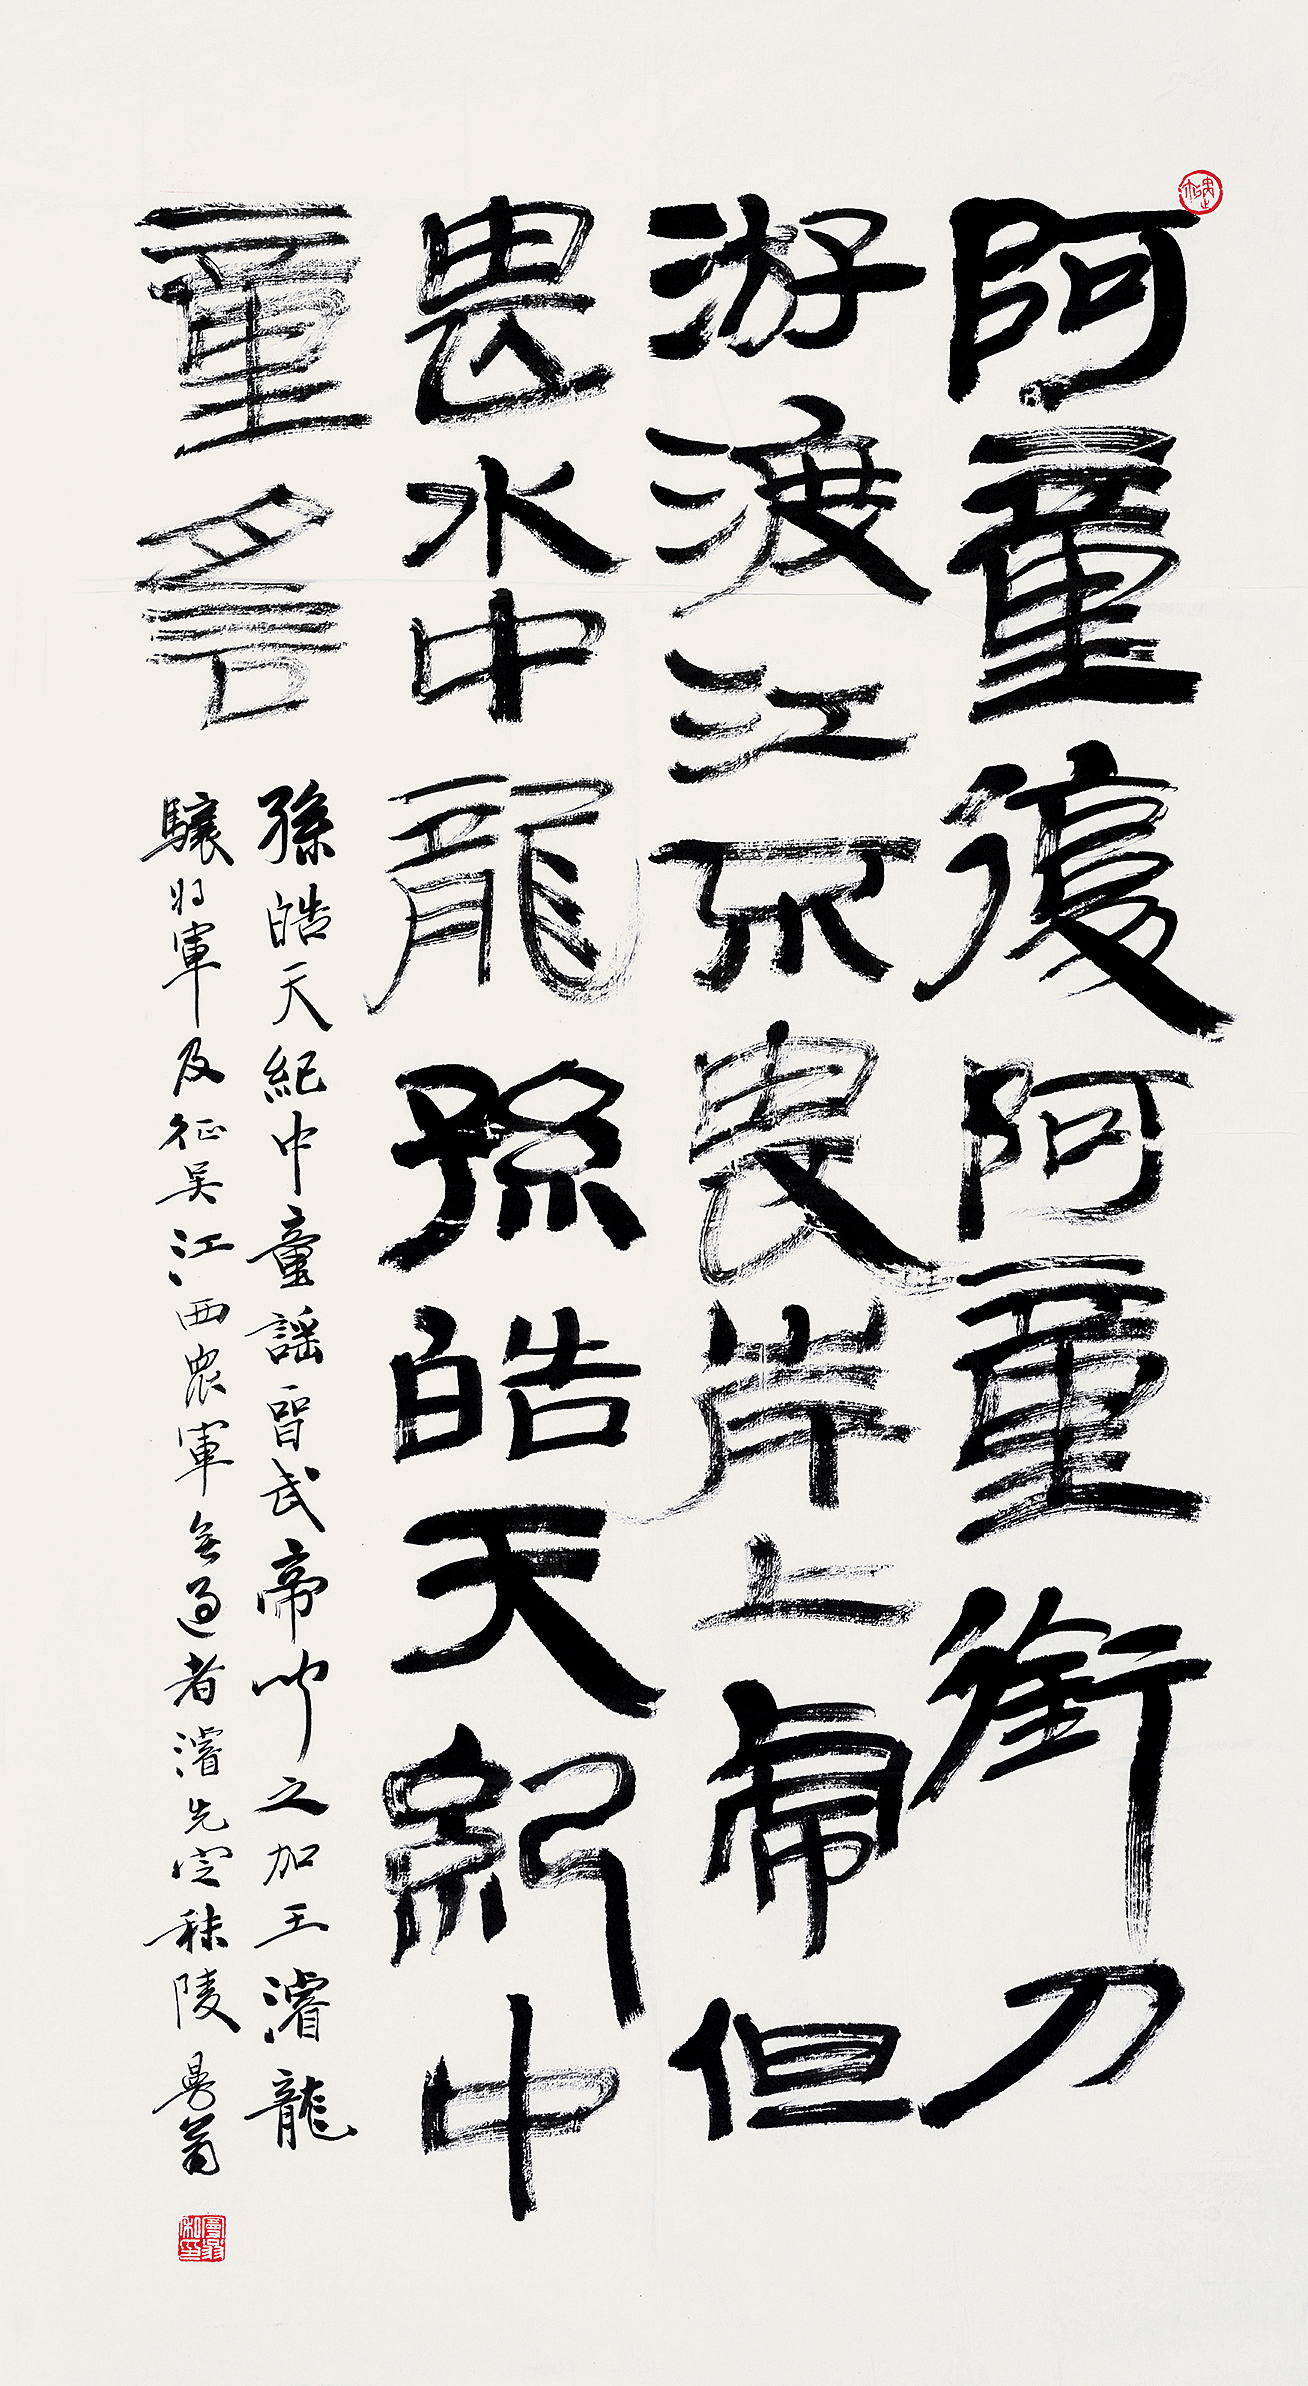 阿童復阿童銜刀
游渡江不畏岸上虎但
畏水中龍孫皓天紀中
童謠
孫皓天紀中童謠晉武帝聞之加王濬龍
驤將軍及征吳江西眾軍無過者濬先定秣陵曼翁